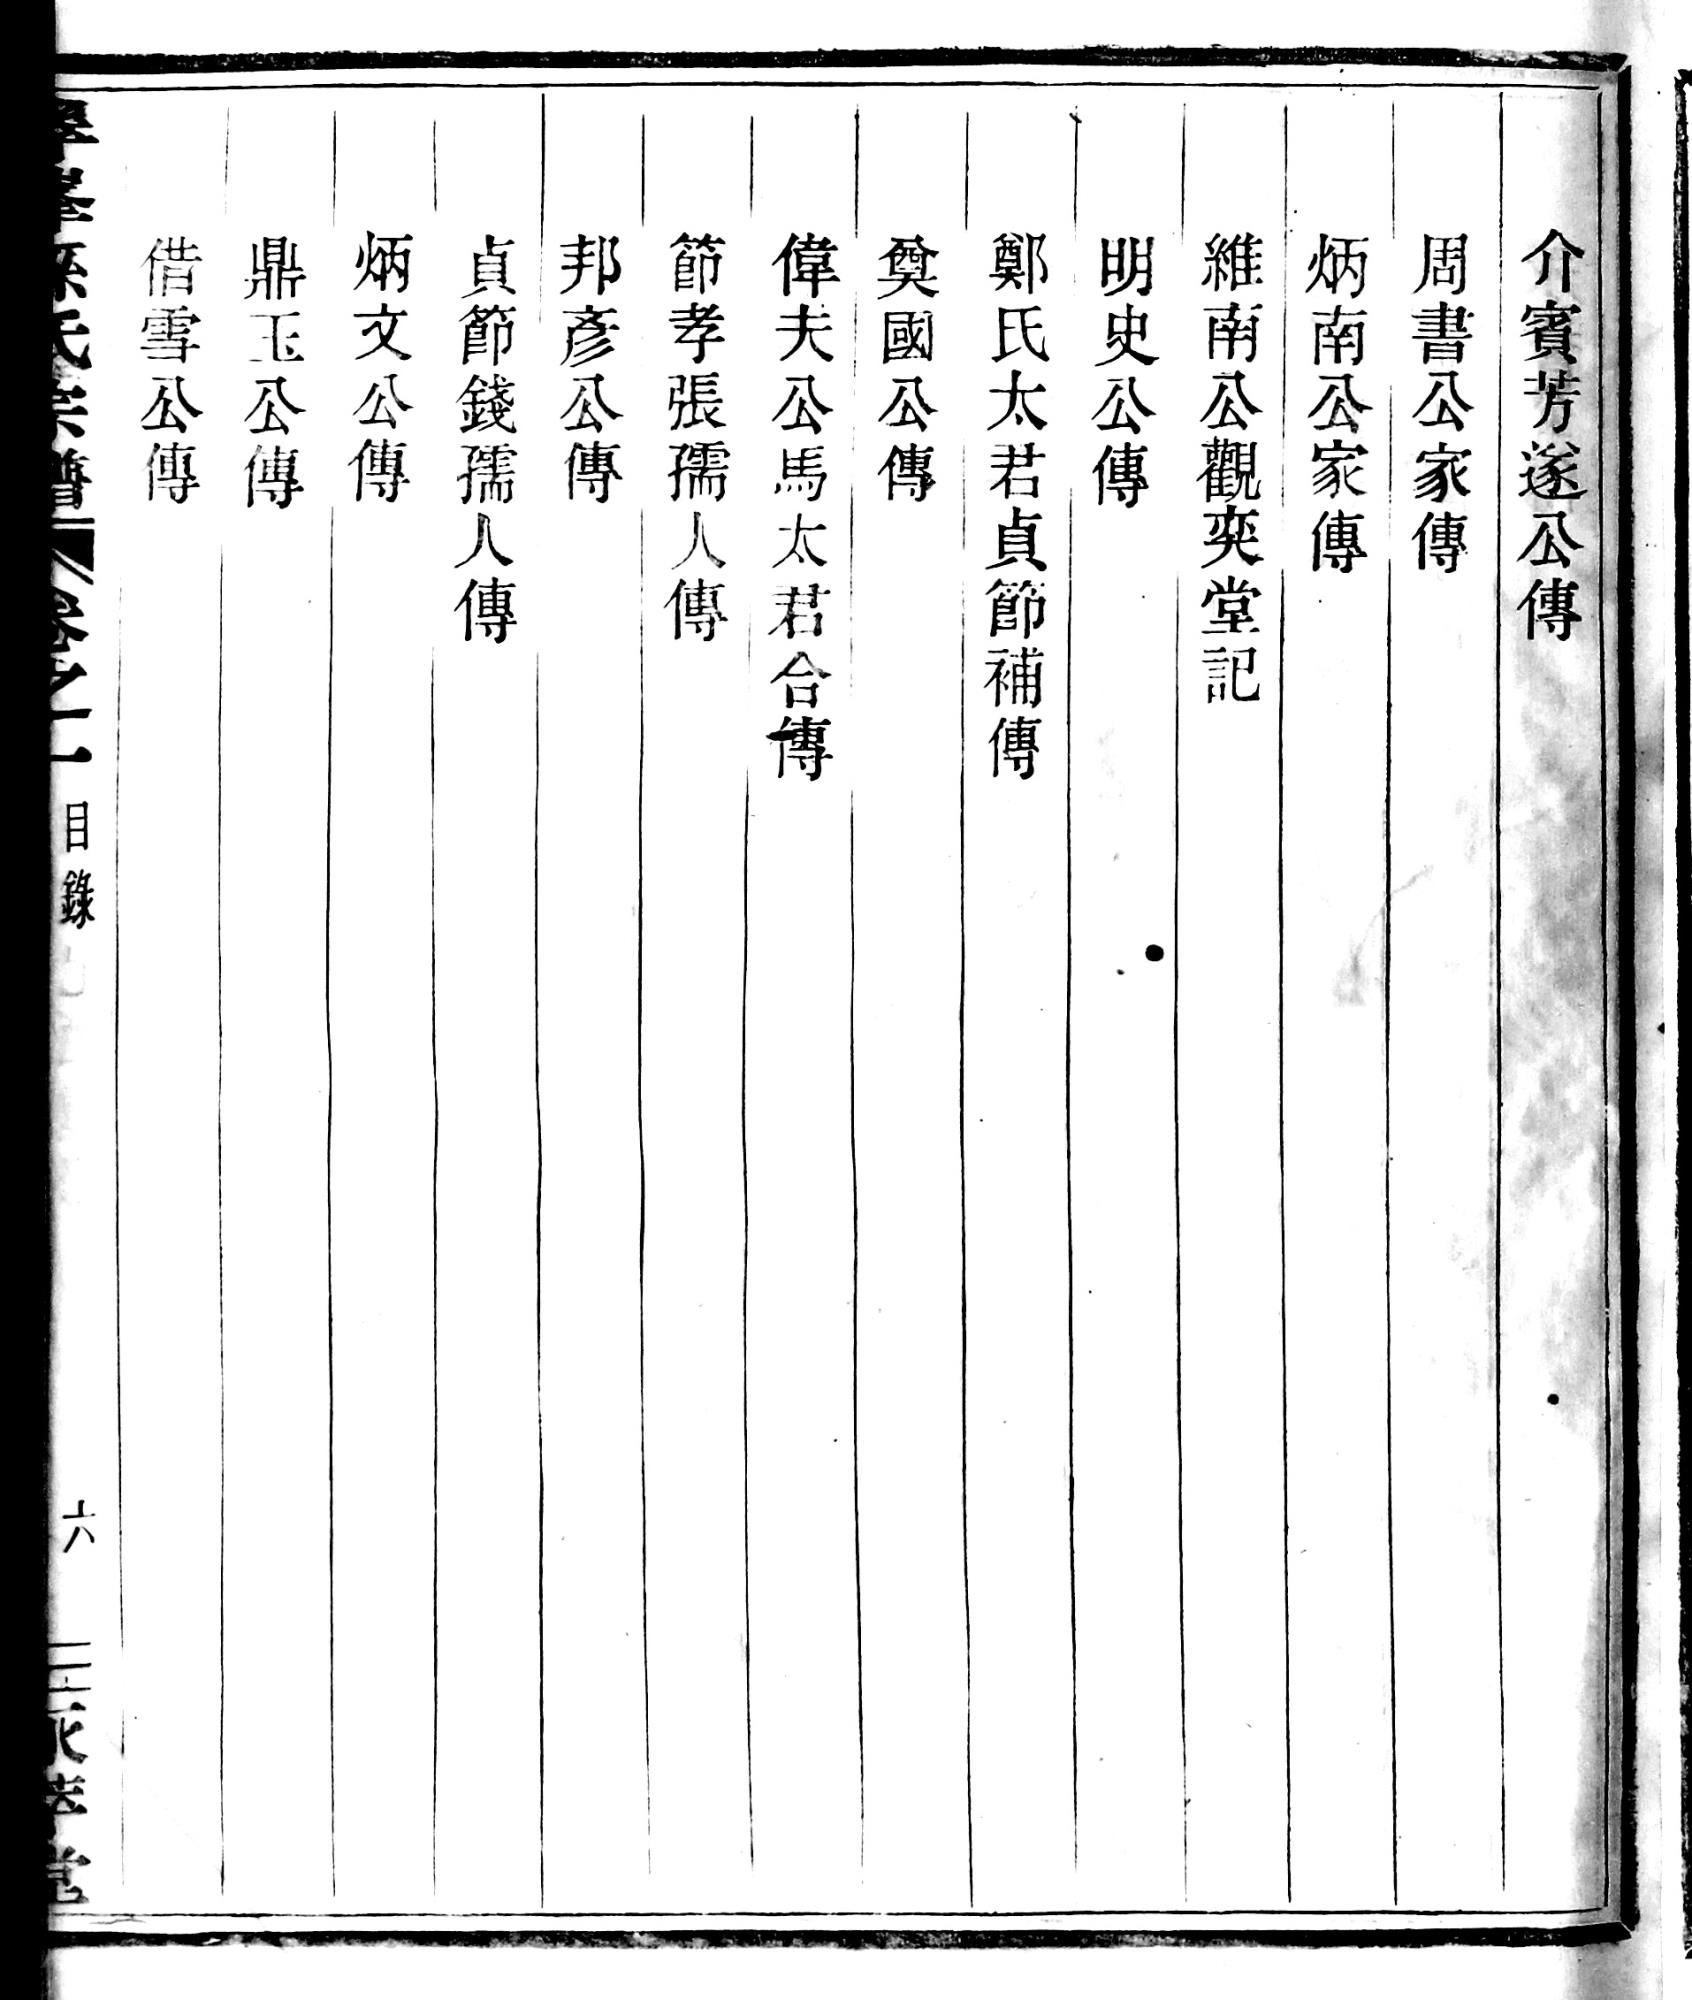 介賓芳遂公傳
周書公家傳
炳南公家傳
維南公觀奕堂記
明史公傳
鄭氏太君貞節補傳
奠國公傳
偉夫公馬太君合傳
節孝張孺人傳
邦彥公傳
貞節錢孺人傳
炳文公傳
鼎玉公傳
借雪公傳
氏宗譜 卷之一 目錄 六 堂